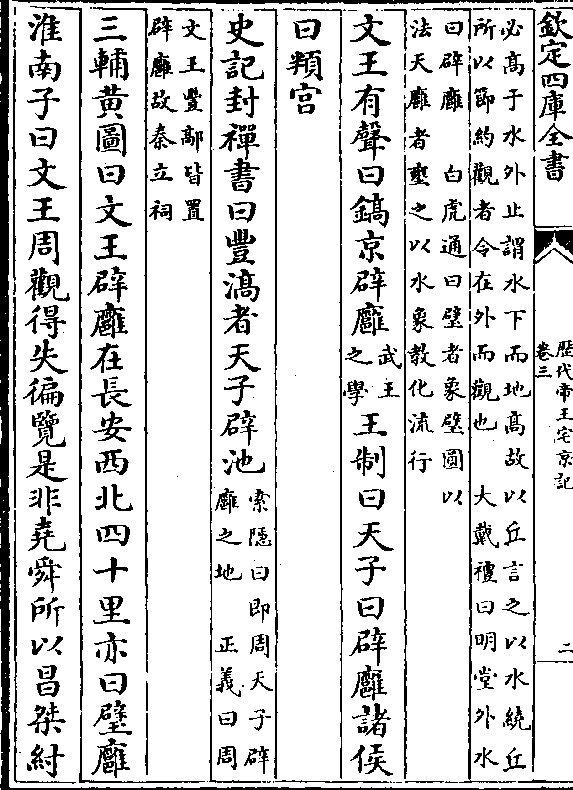 欽定四庫全書
歴代帝王宅京記
卷三
二
必髙于水外止謂水下而地髙故以丘言之以水繞丘
所以節約觀者令在外而觀也　大戴禮曰明堂外水
曰辟廱　白虎通曰璧者象璧圓以
法天廱者壅之以水象教化流行
文王有聲曰鎬京辟廱武王之學王制曰天子曰辟廱諸侯
曰頖宫
史記封禪書曰豐滈者天子辟池索隱曰即周天子辟廱之地　正義曰周
文王豐鄗皆置
辟廱故秦立祠
三輔黃圖曰文王辟廱在長安西北四十里亦曰璧廱
淮南子曰文王周觀得失徧覽是非堯舜所以昌桀紂